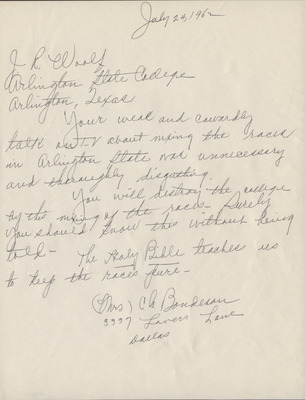 July 24, 1962
J. R. Woolf
Arlington State College
Arlington, Texas
Your weak and cowardly
talk on TV about mixing the races
in Arlington State was unnecessary
and thoroughly disgusting.
You will destroy the college
by this mixing of the races. Surely
you should know this without being
told - The Holy Bible teaches us
to keep the races pure -
(Mrs) C A Bondeson
3337 Lovers Lane
Dallas